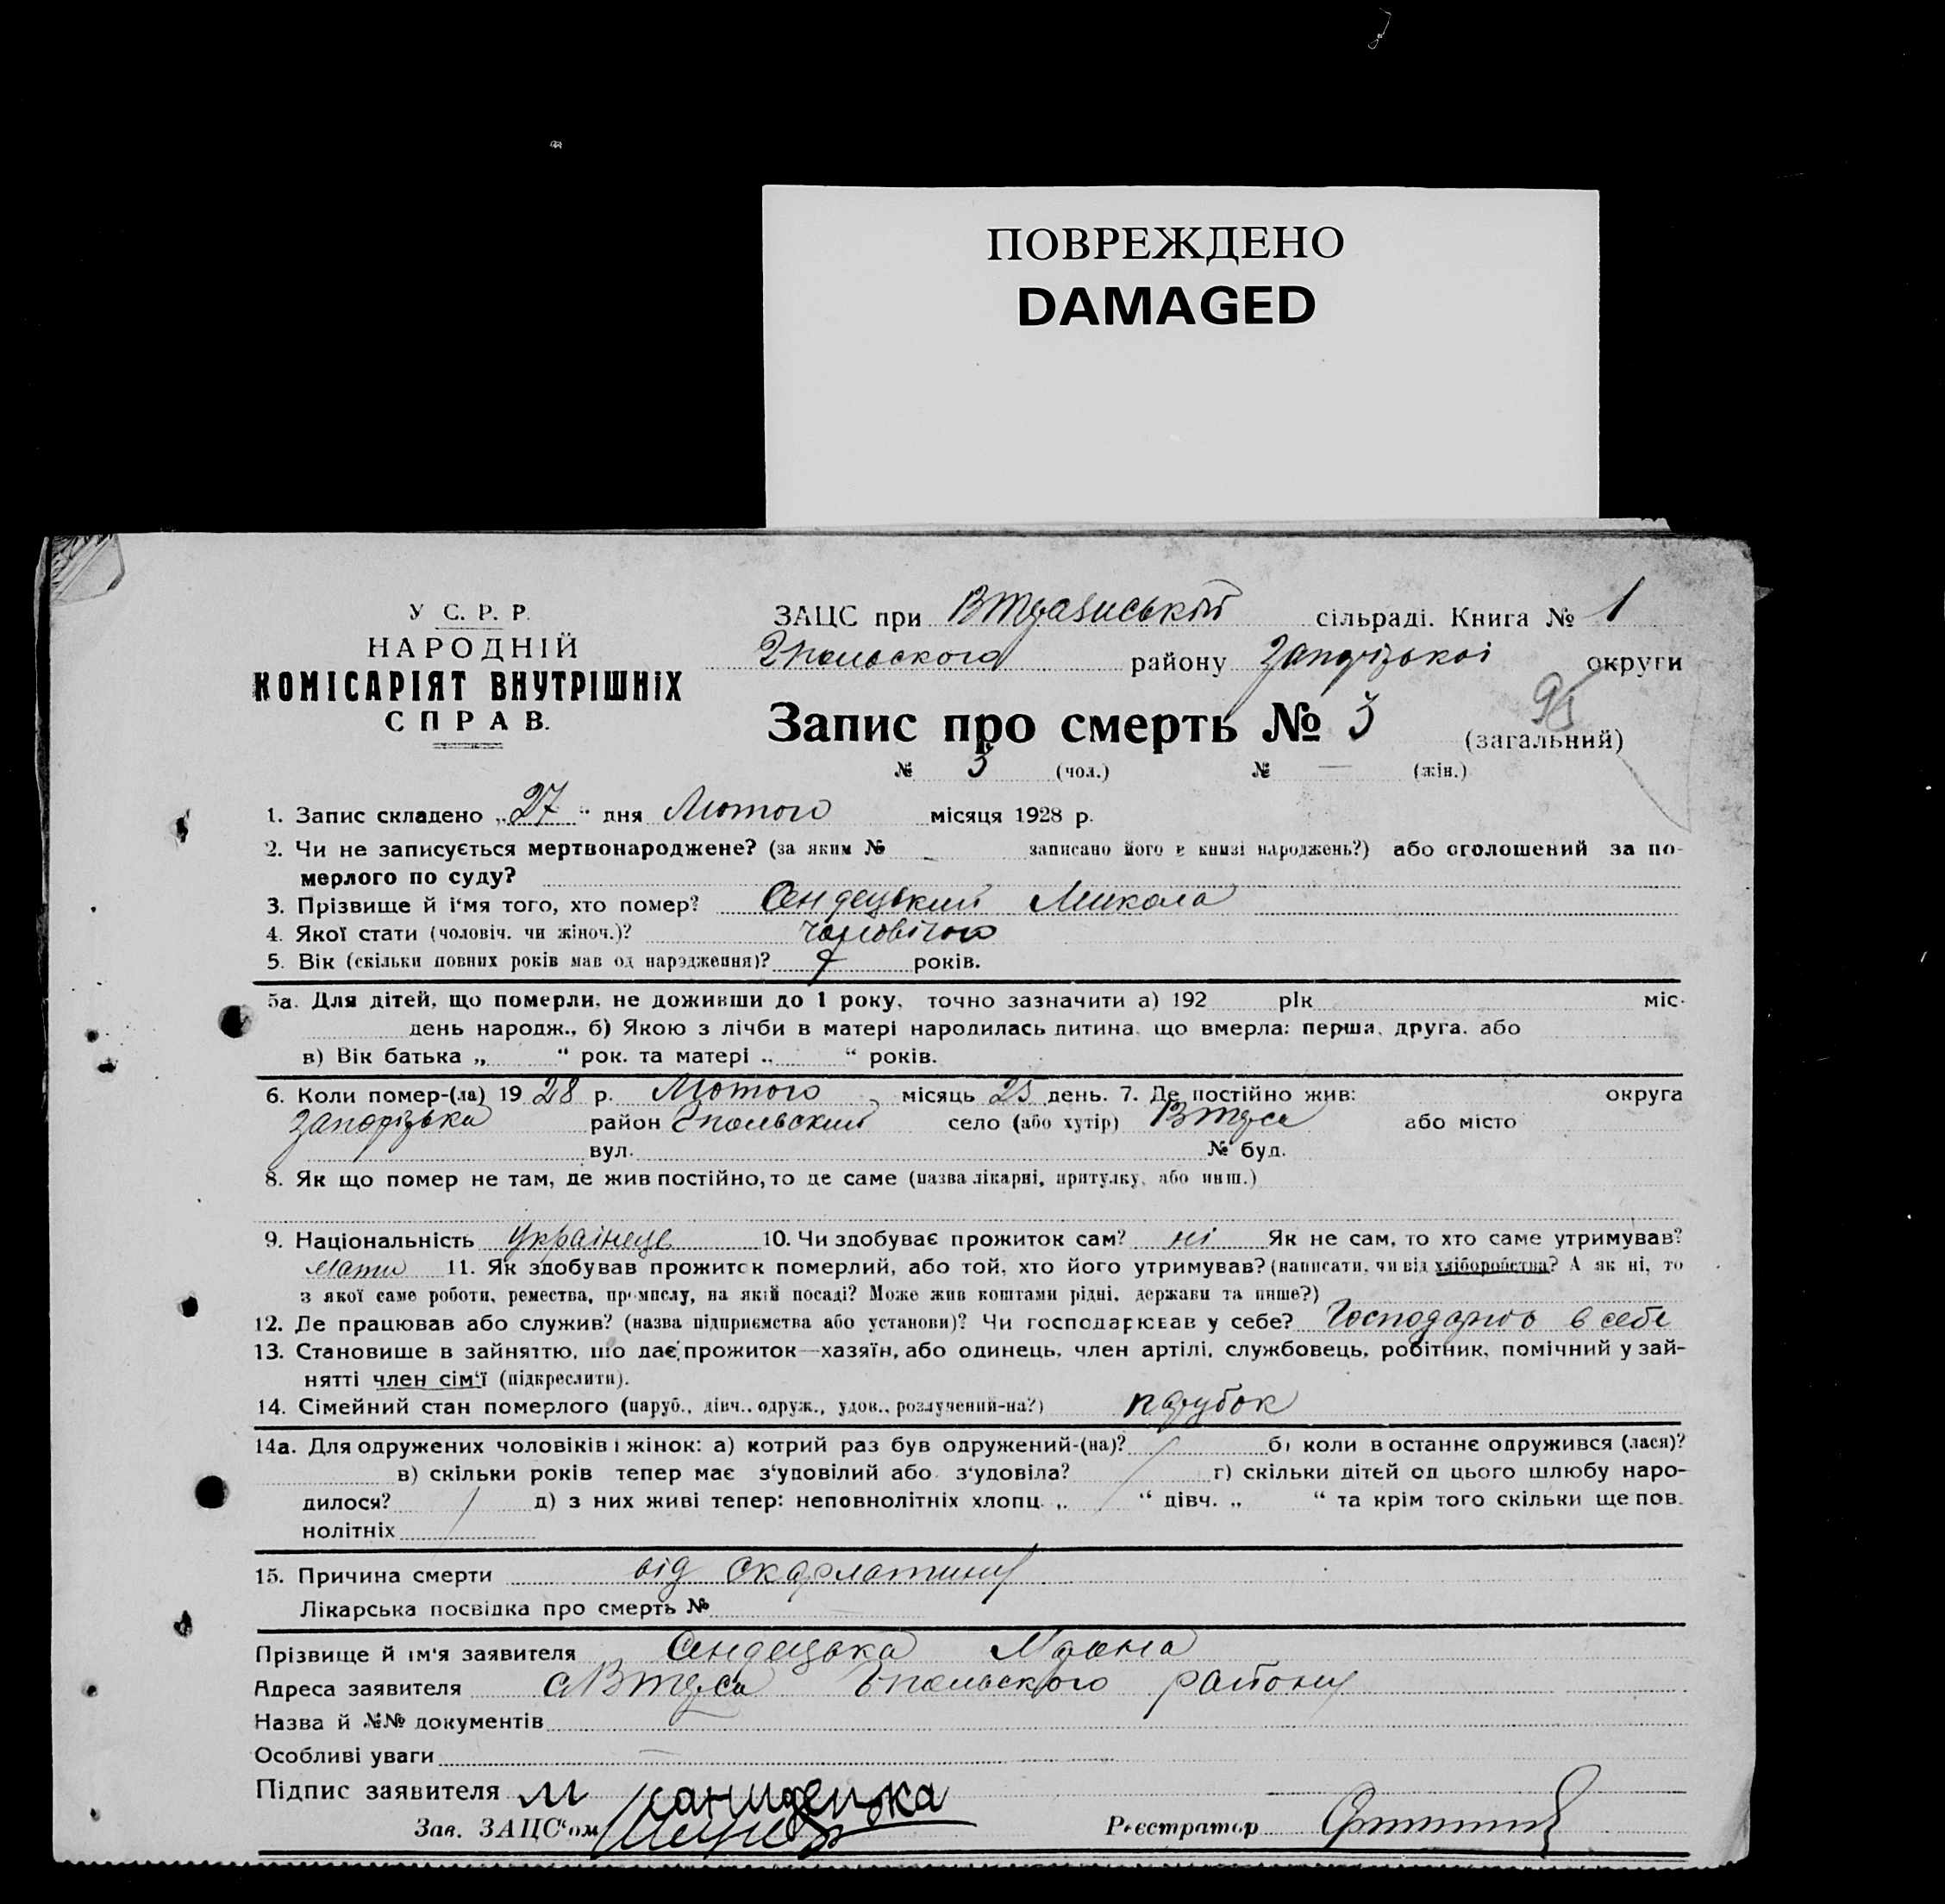 ПОВРЕЖДЕНО
DAMAGED
У С. Р. Р.
НАРОДНІЙ
КОМІСАРІЯТ ВНУТРІШНІХ
СПРАВ.
ЗАЦС при сільраді. Книга № 1
району Запорізької округи
95
Запис про смерть № 3 (загальний)
№ 3 (чол.) № — (жін.)
1. Запис складено „27“ дня Лютого місяця 1928 р.
2. Чи не записується мертвонароджене? (за яким № записано його в книзі народжень?) або оголошений за по-
мерлого по суду?
3. Прізвище й і'мя того, хто помер? Сендецький Микола
4. Якої стати (чоловіч. чи жіноч.)? чоловічого
5. Вік (скільки повних років мав од нарэдження)? 7 років.
5а. Для дітей, що померли, не доживши до 1 року, точно зазначити а) 192 рік міс.
день народж., б) Якою з лічби в матері народилась дитина, що вмерла: перша, друга, або
в) Вік батька „ “ рок. та матері „ “ років.
6. Коли помер-(ла) 1928 р. Лютого місяць 25 день. 7. Де постійно жив: округа
Запорізька район село (або хутір) або місто
вул. № буд.
8. Як що помер не там, де жив постійно, то де саме (назва лікарні, притулку, або инш.)
9. Національність Українець 10. Чи здобуває прожиток сам? ні Як не сам, то хто саме утримував?
мати 11. Як здобував прожиток померлий, або той, хто його утримував? (написати, чи від хліборобства? А як ні, то
з якої саме роботи, ремества, промислу, на якій посаді? Може жив коштами рідні, держави та инше?)
12. Де працював або служив? (назва підприємства або установи)? Чи господарював у себе? в себе
13. Становище в зайняттю, що дає прожиток—хазяїн, або одинець, член артілі, службовець, робітник, помічний у зай-
нятті член сім'ї (підкреслити).
14. Сімейний стан померлого (паруб., дівч., одруж., удов., розлучений-на?) парубок
14а. Для одружених чоловіків і жінок: а) котрий раз був одружений-(на)? б) коли в останнє одружився (лася)?
в) скільки років тепер має з'удовілий або з'удовіла? г) скільки дітей од цього шлюбу наро-
дилося? д) з них живі тепер: неповнолітніх хлопц. „ “ дівч. „ “ та крім того скільки ще пов.
нолітніх
15. Причина смерти від скарлатини
Лікарська посвідка про смерть №
Прізвище й ім'я заявителя Сендецька
Адреса заявителя району
Назва й №№ документів
Особливі уваги —
Підпис заявителя М
Зав. ЗАЦС'ом Реєстратор